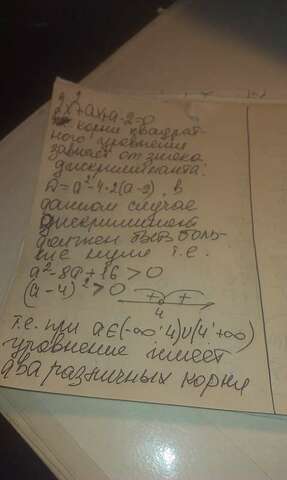 2x²+ax+a-2=0
корни квадрат-
ного уравнения
зависят от знака
дискриминанта:
D=a²-4·2(a-2), в
данном случае
дискриминант
должен быть боль-
ше нуля т.е.
a²-8a+16>0
(a-4)²>0
+ +
4
т.е. при a∈(-∞;4)∪(4;+∞)
уравнение имеет
два различных корня